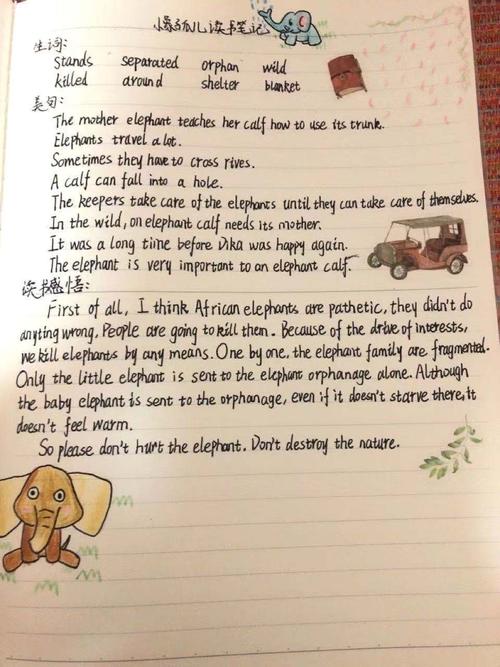 小象孤儿读书笔记
生词:
stands separated orphan wild
killed around shelter blanket
美句:
The mother elephant teaches her calf how to use its trunk.
Elephants travel a lot.
Sometimes they have to cross rives.
A calf can fall into a hole.
The keepers take care of the elephants until they can take care of themselves.
In the wild, on elephant calf needs its mother.
It was a long time before Dika was happy again.
The elephant is very important to an elephant calf.
读书感悟:
First of all, I think African elephants are pathetic, they didn't do
anyting wrong. People are going to kill them. Because of the drive of interests,
we kill elephants by any means. One by one, the elephant family are fragmented.
Only the little elephant is sent to the elephant orphanage alone. Although
the baby elephant is sent to the orphanage, even if it doesn't starve there, it
doesn't feel warm.
So please don't hurt the elephant. Don't destroy the nature.